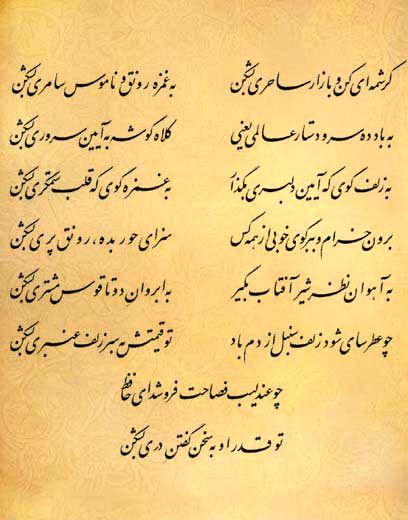 کرشمه‌ای کن و بازار ساحری بشکن به غمزه رونق و ناموس سامری بشکن
به باد ده سر و دستار عالمی یعنی کلاه گوشه به آیین سروری بشکن
به زلف گوی که آیین دلبری بگذار به غمزه گوی که قلب ستمگری بشکن
برون خرام و ببر گوی خوبی از همه کس سزای حور بده، رونق پری بشکن
به آهوان نظر شیر آفتاب بگیر به ابروان دوتا قوس مشتری بشکن
چو عطرسای شود زلف سنبل از دم باد تو قیمتش به سر زلف عنبری بشکن
چو عندلیب فصاحت فروشد ای حافظ
تو قدر او به سخن گفتن دری بشکن